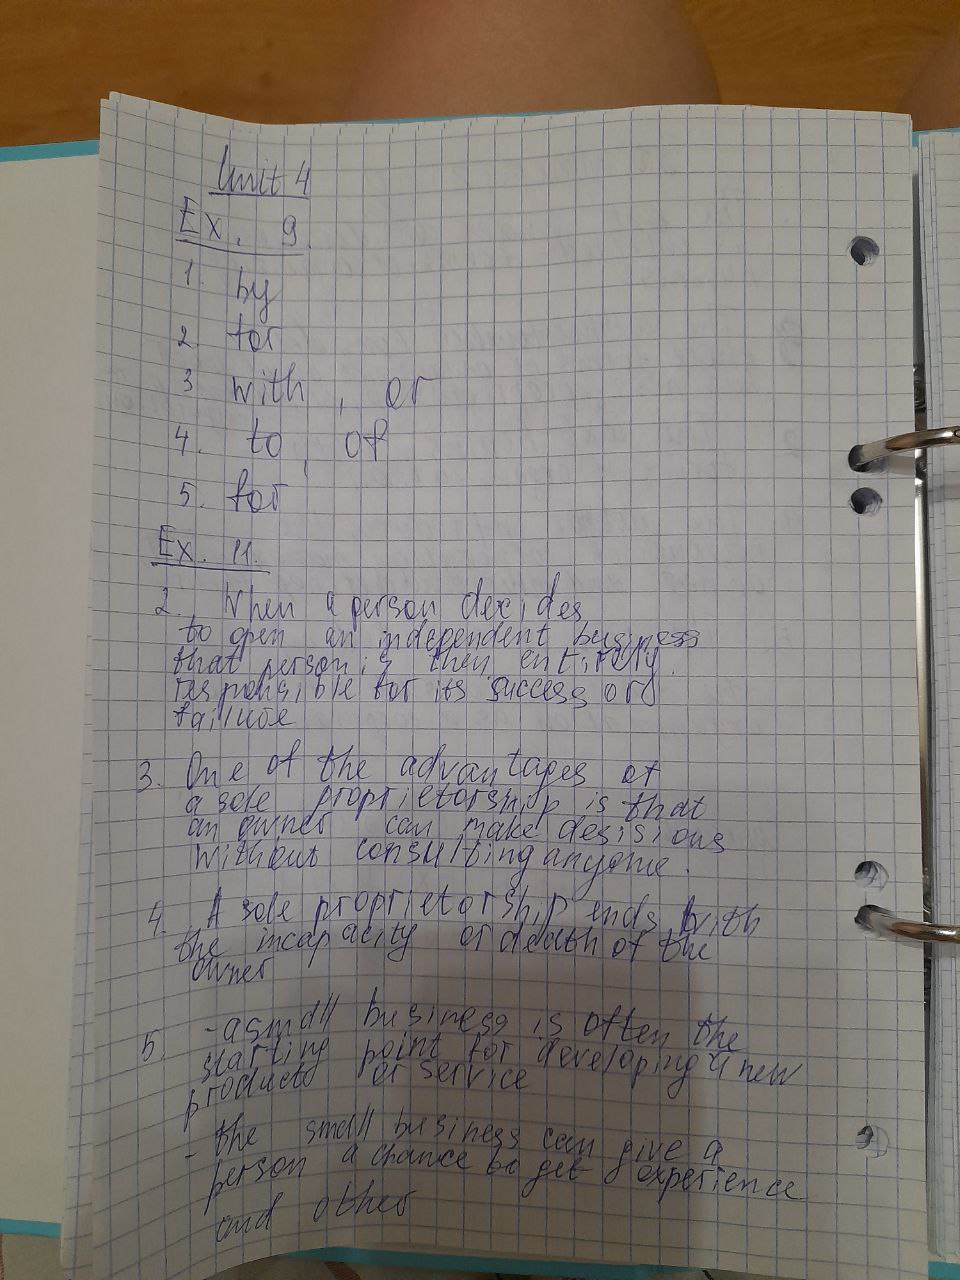 Unit 4
Ex. 9.
1. by
2. for
3 with, or
4. to, of
5. for
Ex. 11.
2. When a person decides
to open an independent business
that person is then entirely
responsible for its success or
failure
3. One of the advantages of
a sole proprietorship is that
an owner can make desisions
without consulting anyone.
4. A sole proprietorship ends with
the incapacity or death of the
owner
5. - a small business is often the
starting point for developing a new
product or service
- the small business can give a
person a chance to get experience
and other